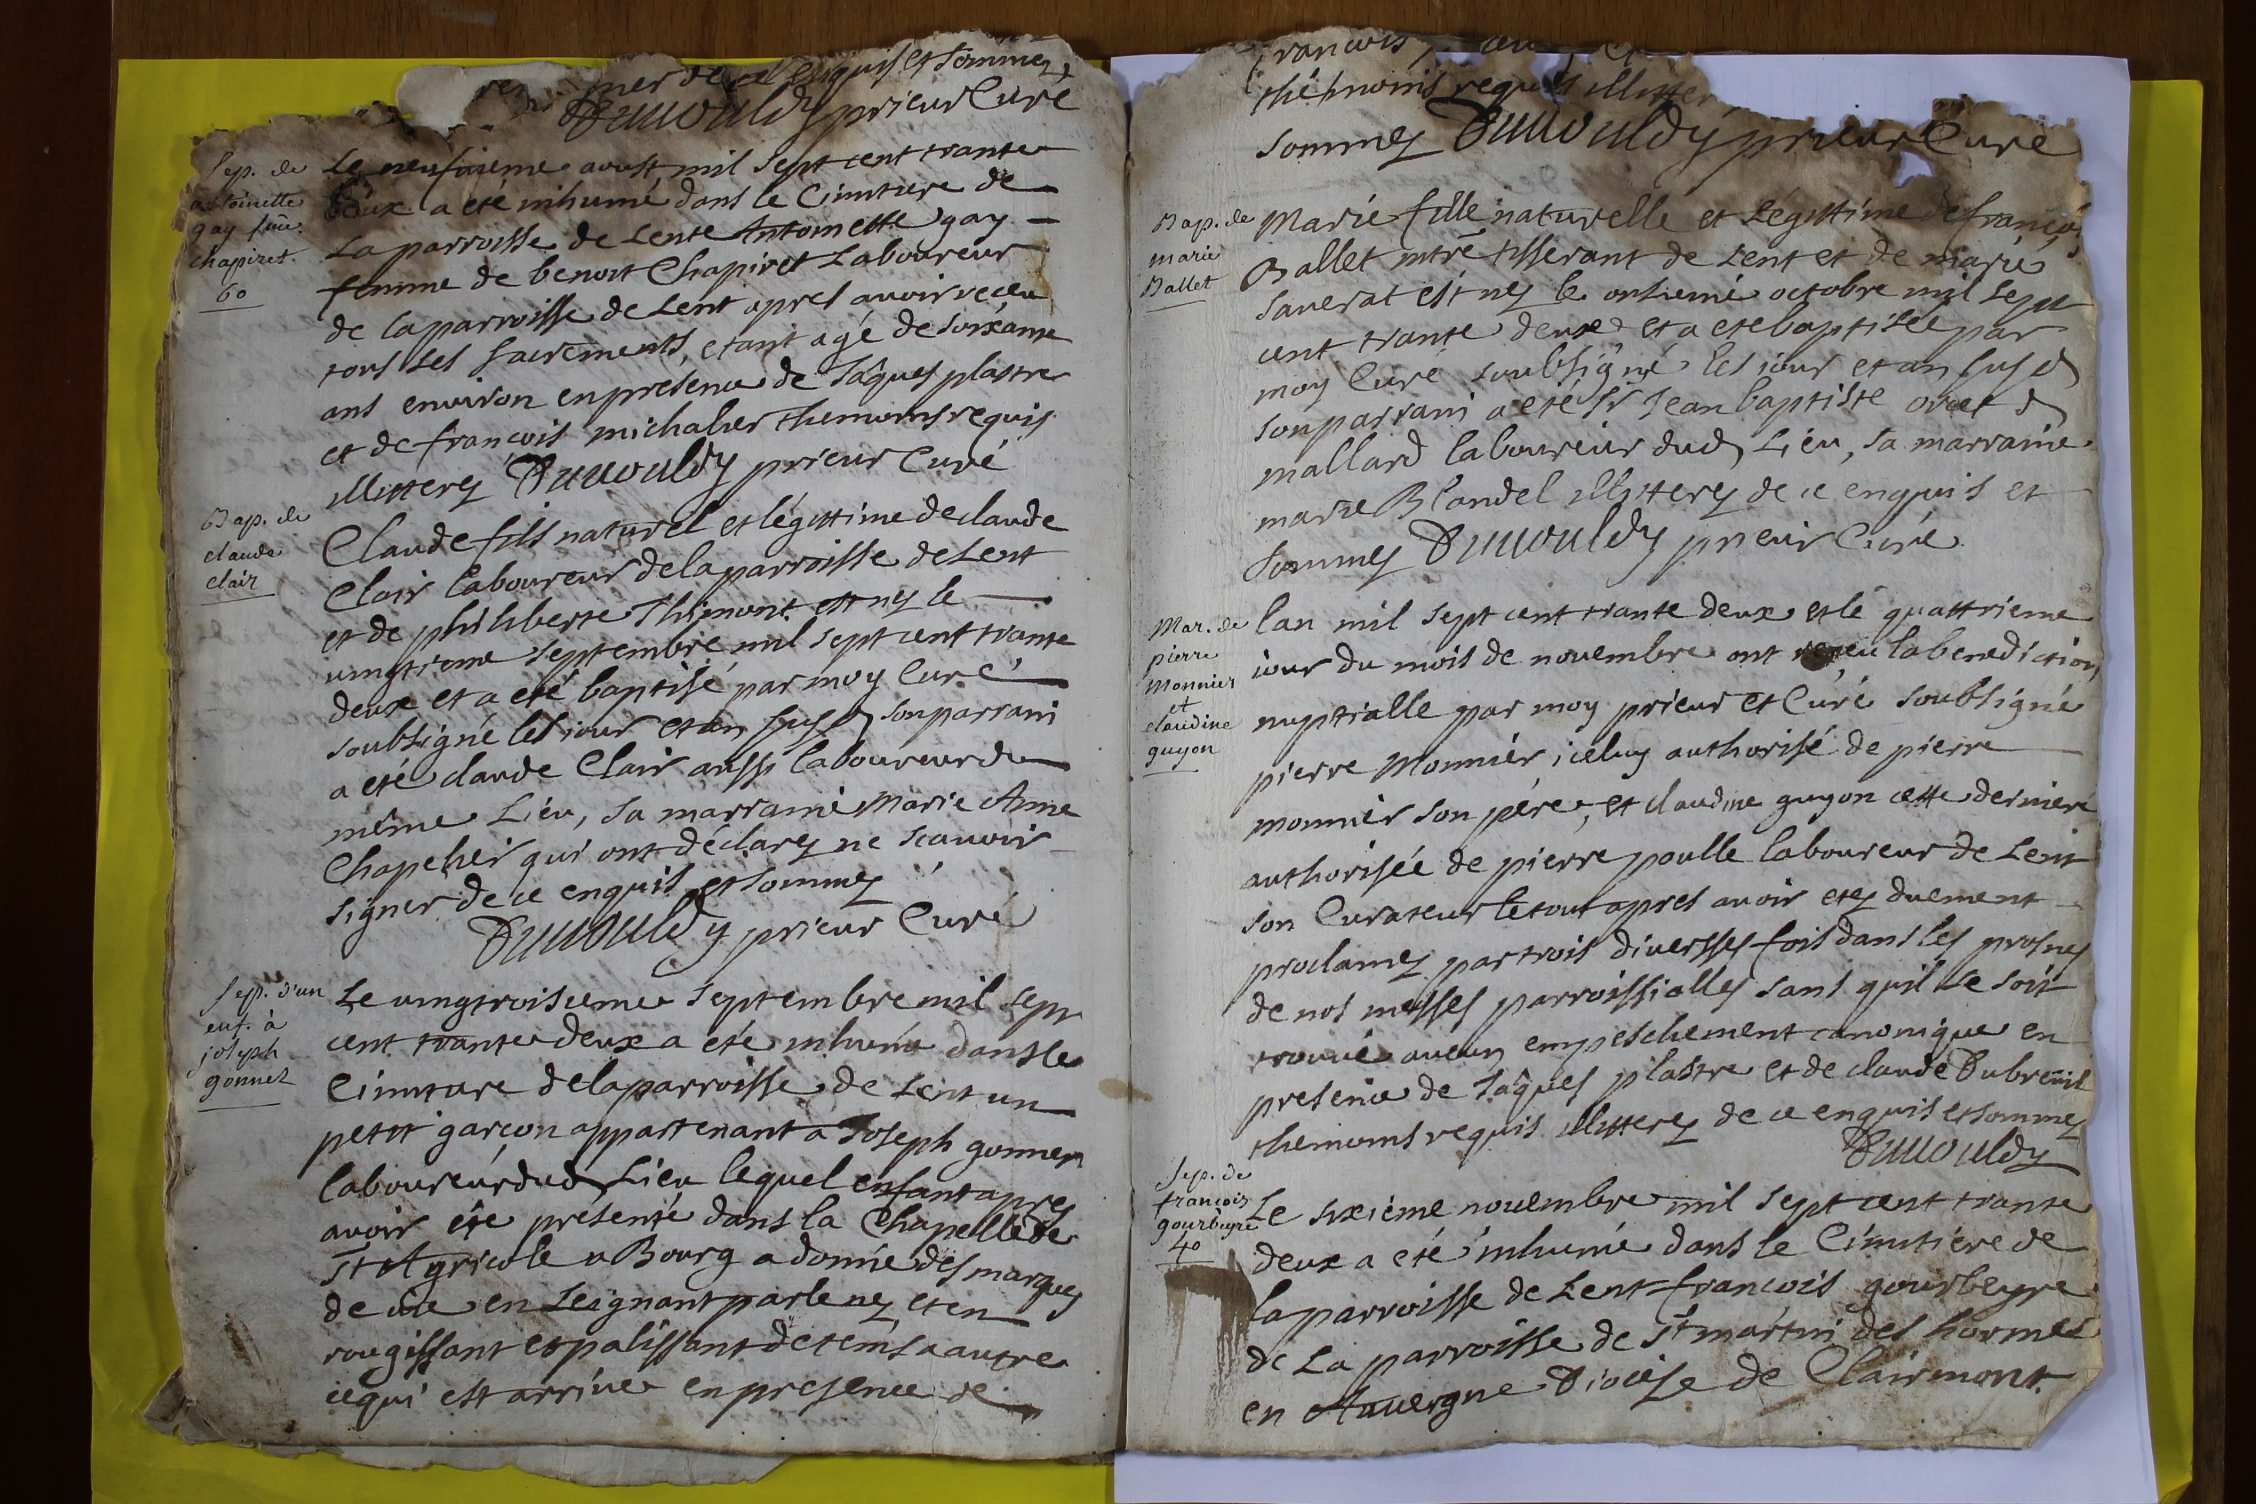 de ce enquis et sommez
Duuouldy prieur Curé
Sep. de
antoinette
gay fme
chapiret.
60
Le neufuieme aoust mil sept cent trante
deux a eté inhumé dans le Cimtiere de
La parroisse de Lente Antoinette gay
femme de benoit Chapiret Laboureur
de la parroisse de Lent apres auoir receu
tous les sacrements, etant agé de soixante
ans environ en presence de Jâques plastre
et de françois michalier themoins requis
illitterez Duuouldy prieur Curé
Bap. de
claude
clair
Claude fils naturel et légittime de claude
Clair laboureur de la parroisse de Lent
et de philiberte Thimont est nez le
uingtieme septembre mil sept cent trante
deux et a eté baptisé par moy Curé
soubsigné les iour et an susd son parrain
a eté claude Clair aussi laboureur du
même Liéu, sa marraine Marie Anne
Chapelier qui ont déclarez ne scauoir
signer de ce enquis et sommez
Duuouldy prieur Curé
Sep. d'un
enf. à
joseph
gonnet
Le uingtroisieme septembre mil sept
cent trante deux a eté inhumé dans le
Cimtiere de la parroisse de Lent un
petit garçon appartenant a Joseph gonnet
laboureur dud Lieu lequel enfant apres
auoir éte presenté dans la Chapelle de
St Agricole a Bourg a donné des marques
de uie en seignant par le nez et en
rougissant et palissant de tems a autre
ce qui est arriué en presence de
francois
thémoins requis illitter
sommez Duuouldy prieur Curé
Bap. de
marie
Ballet
Marie fille naturelle et Légittime de françois
Ballet mtre tisserant de Lent et de marie
sauerat est nez le onsieme octobre mil sept
cent trante deux et a eté baptisée par
moy Curé soubsigné les iour et an susd
son parrain a eté Sr Jean baptiste ouet d
mallard laboureur dud Liéu, sa marraine
marie Blandel illitterez de ce enquis et
sommez Duuouldy prieur Curé.
Mar. de
pierre
Monnier
et
claudine
guyon
lan mil sept cent trante deux et lé quattrieme
iour du mois de nouembre ont reçeu la benediction
nuptialle par moy prieur et Curé soubsigné
pierre Monnier, iceluy authorisé de pierre
monnier son pére, et claudine guyon cette derniere
authorisée de pierre poulle laboureur de Lent
son Curateur le tout apres auoir etez duement
proclamez par trois diuersses fois dans les prosnes
de nos messes parroissialles sans quil se soit
trouué aucun empeschement canonique en
presence de Jâques plastre et de claude Dubreüil
themoins requis illitterez de ce enquis et sommez
Duuouldy
Sep. de
françois
gourbeyre
40
Le sixiéme nouembre mil sept cent trante
deux a eté inhumé dans le Cimtiére de
la parroisse de Lent francois gourbeyre
de La parroisse de St martin des hormes
en Auuergne Diocése de Clairmont.